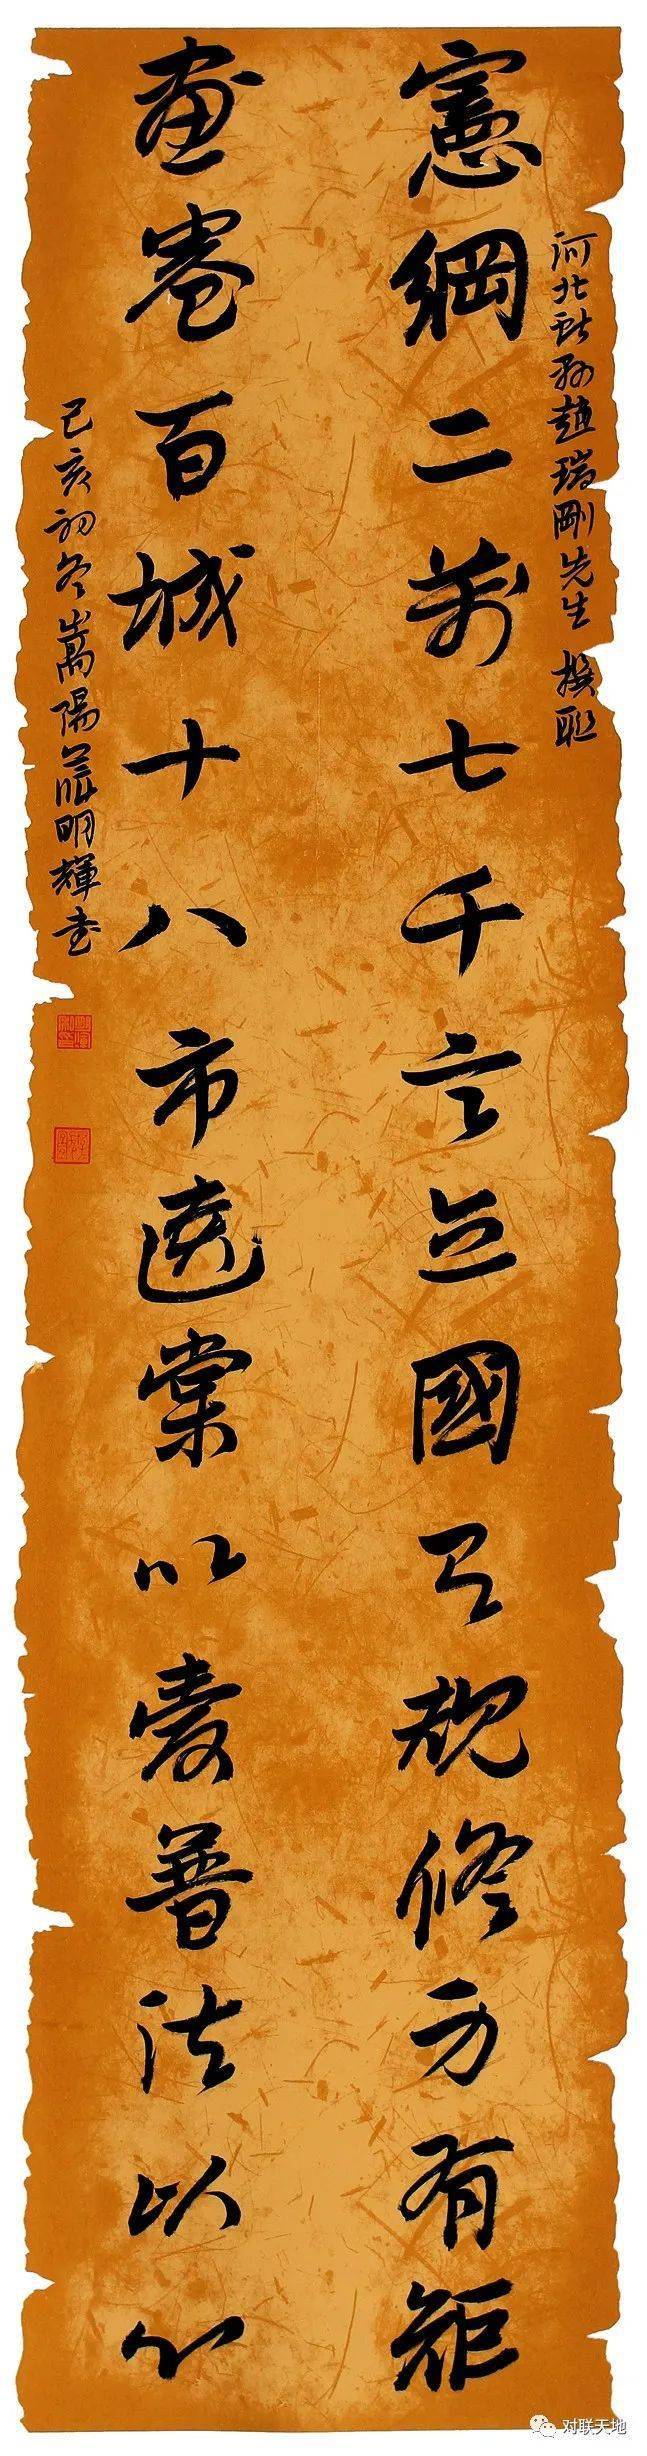 河北獻縣趙瑞剛先生 撰联
憲綱二萬七千言立國規修方有矩
画卷百城十八市棠以爱普法以
己亥初冬嵩陽明輝书
对联天地